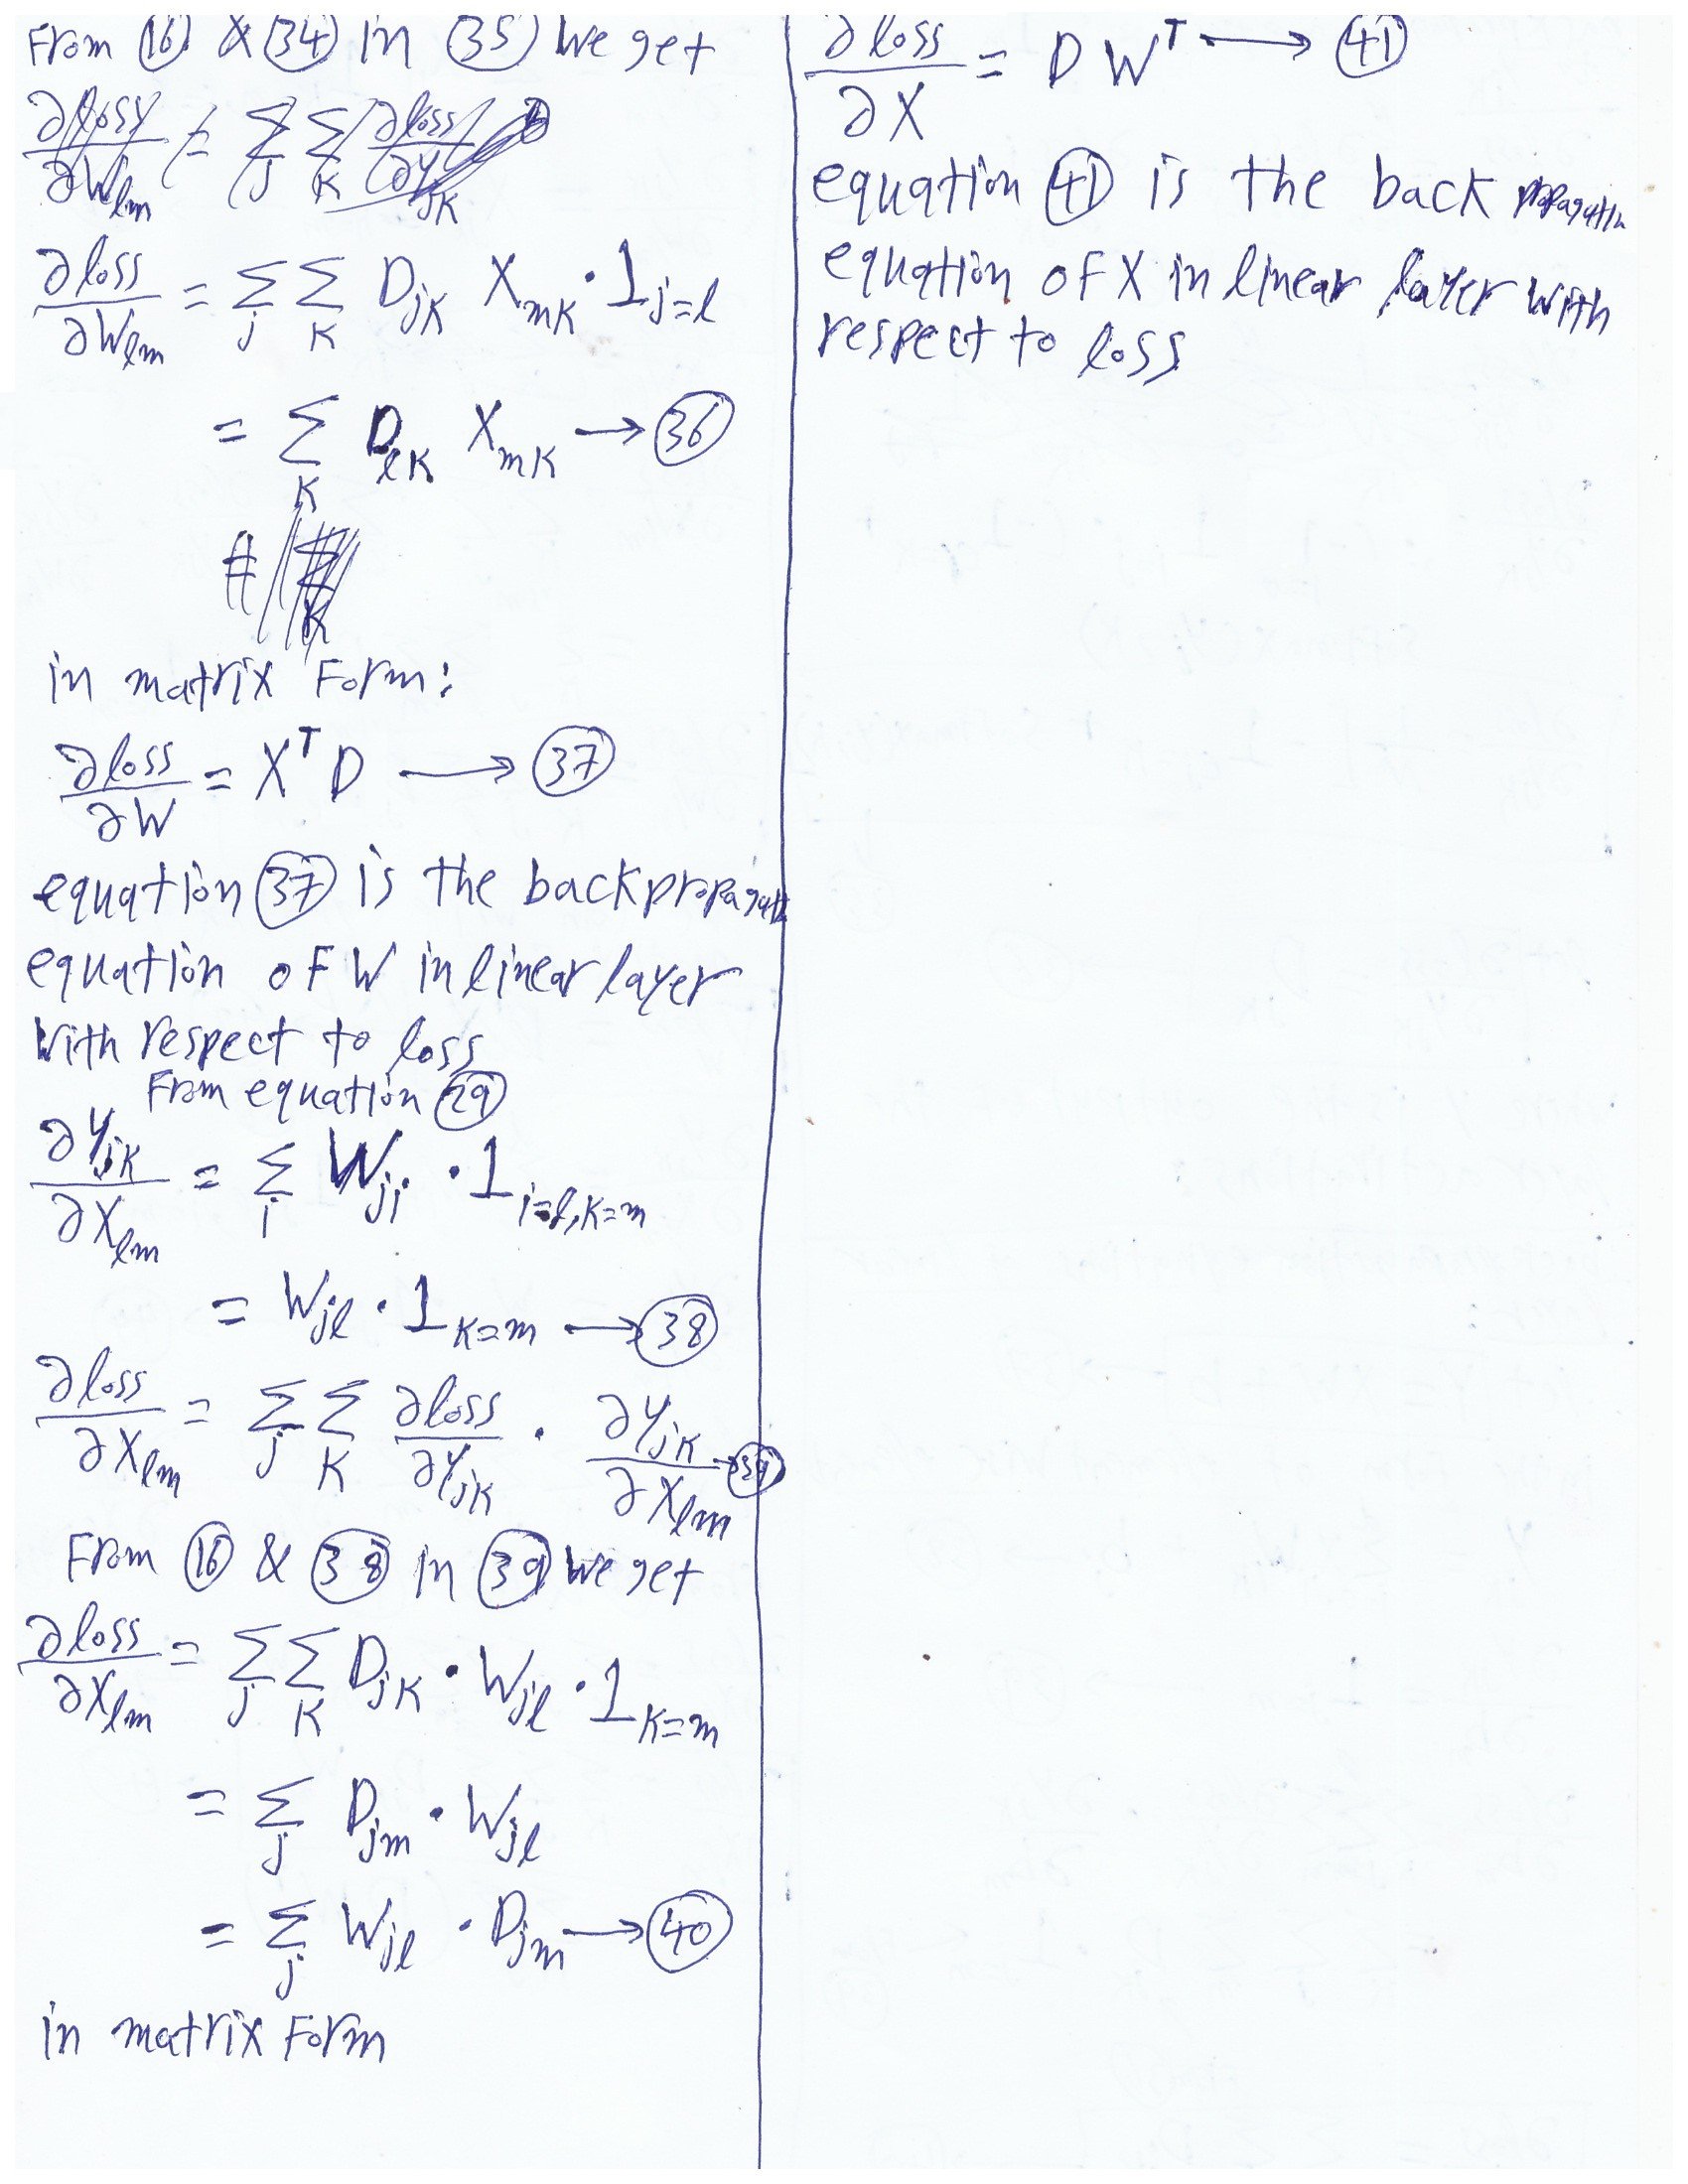 From (16) & (34) in (35) we get
∂loss/∂W_lm = Σ_j Σ_k ∂loss/∂Y_jk
∂loss/∂W_lm = Σ_j Σ_k D_jk X_mk · 1_{j=l}
= Σ_k D_lk X_mk → (36)
in matrix Form:
∂loss/∂W = X^T D → (37)
equation (37) is the backpropagation
equation of W in linear layer
with respect to loss
From equation (29)
∂Y_jk/∂X_lm = Σ_i W_ji · 1_{i=l,k=m}
= W_jl · 1_{k=m} → (38)
∂loss/∂X_lm = Σ_j Σ_k ∂loss/∂Y_jk · ∂Y_jk/∂X_lm → (39)
From (16) & (38) in (39) we get
∂loss/∂X_lm = Σ_j Σ_k D_jk · W_jl · 1_{k=m}
= Σ_j D_jm · W_jl
= Σ_j W_jl · D_jm → (40)
in matrix Form
∂loss/∂X = D W^T → (41)
equation (41) is the back propagation
equation of X in linear layer with
respect to loss